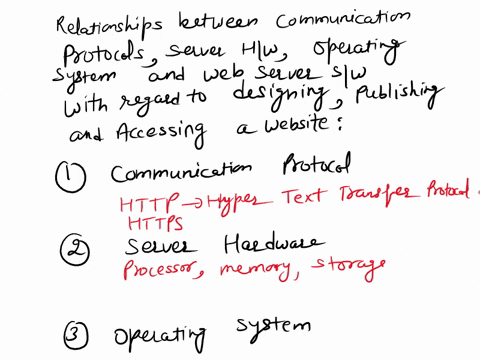 Relationships between Communication
Protocols, Server H/w, Operating
System and web server s/w
with regard to designing, Publishing
and Accessing a website:
① Communication Protocol
HTTP → Hyper Text Transfer Protocol.
HTTPS
② Server Hardware
Processor, memory, storage
③ Operating System